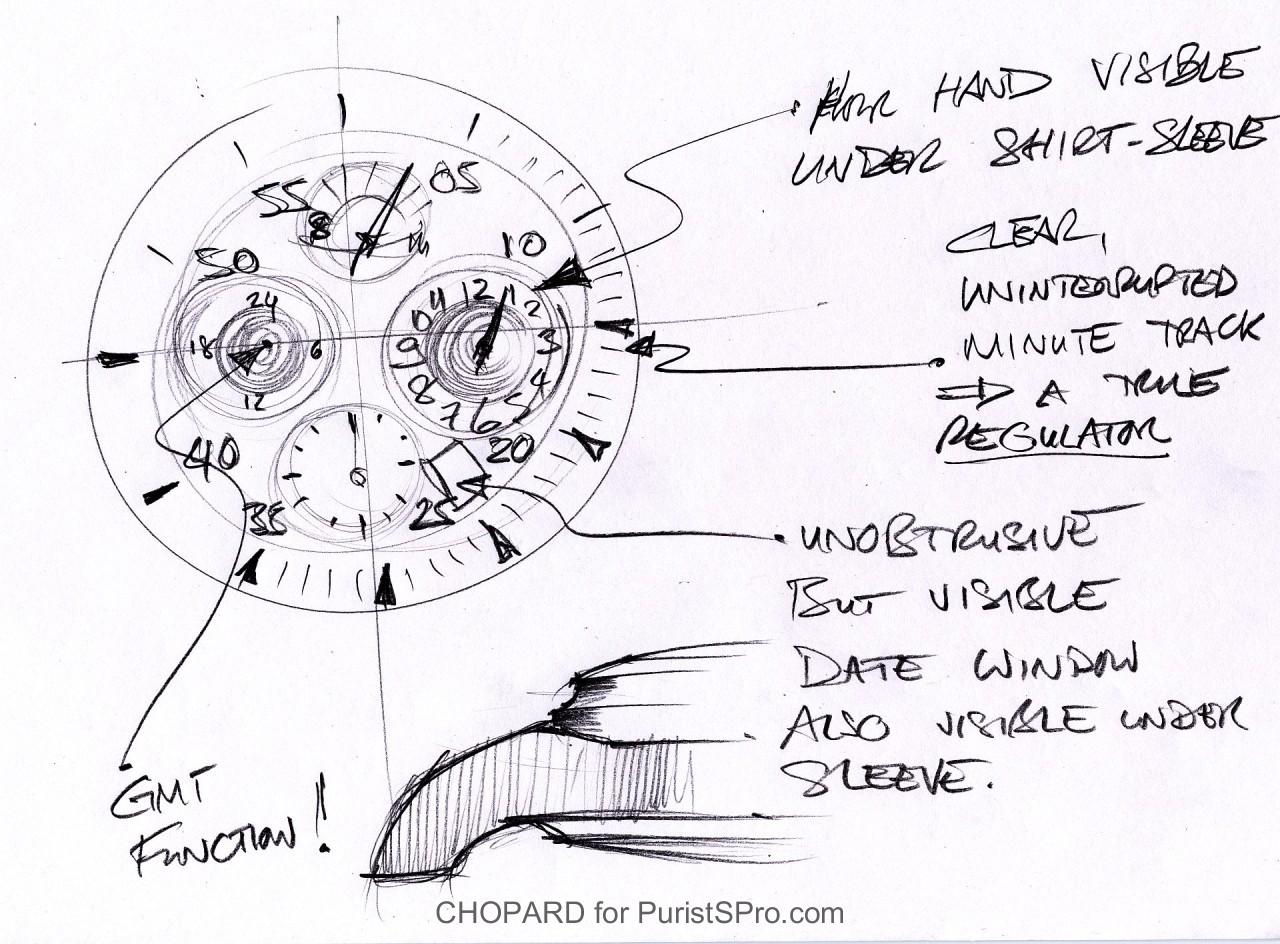 • HOUR HAND VISIBLE
UNDER SHIRT-SLEEVE
CLEAR,
UNINTERRUPTED
• MINUTE TRACK
⇒ A TRUE
REGULATOR
• UNOBTRUSIVE
BUT VISIBLE
DATE WINDOW
ALSO VISIBLE UNDER
SLEEVE.
GMT
FUNCTION!
55
05
50
10
8
24
18
6
12
12
11
2
3
4
5
6
7
8
9
40
35
20
25
CHOPARD for PuristSPro.com